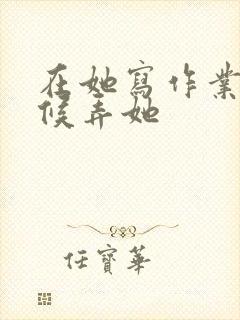 在她寫作業
候弄她
任寶華